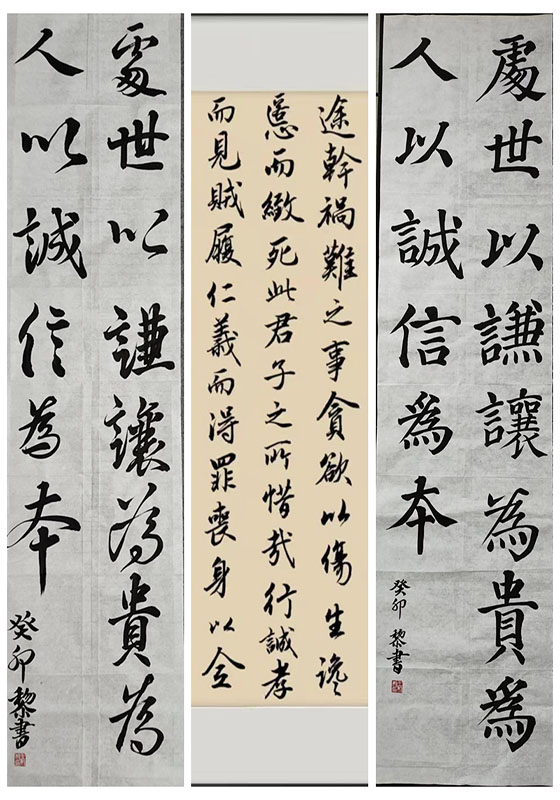 處世以謙讓為貴為
人以誠信為本
癸卯黎書
途幹禍難之事貪欲以傷生讒
慝而緻死此君子之所惜哉行誠孝
而見賊履仁義而得罪喪身以全
處世以謙讓為貴為
人以誠信為本
癸卯黎書